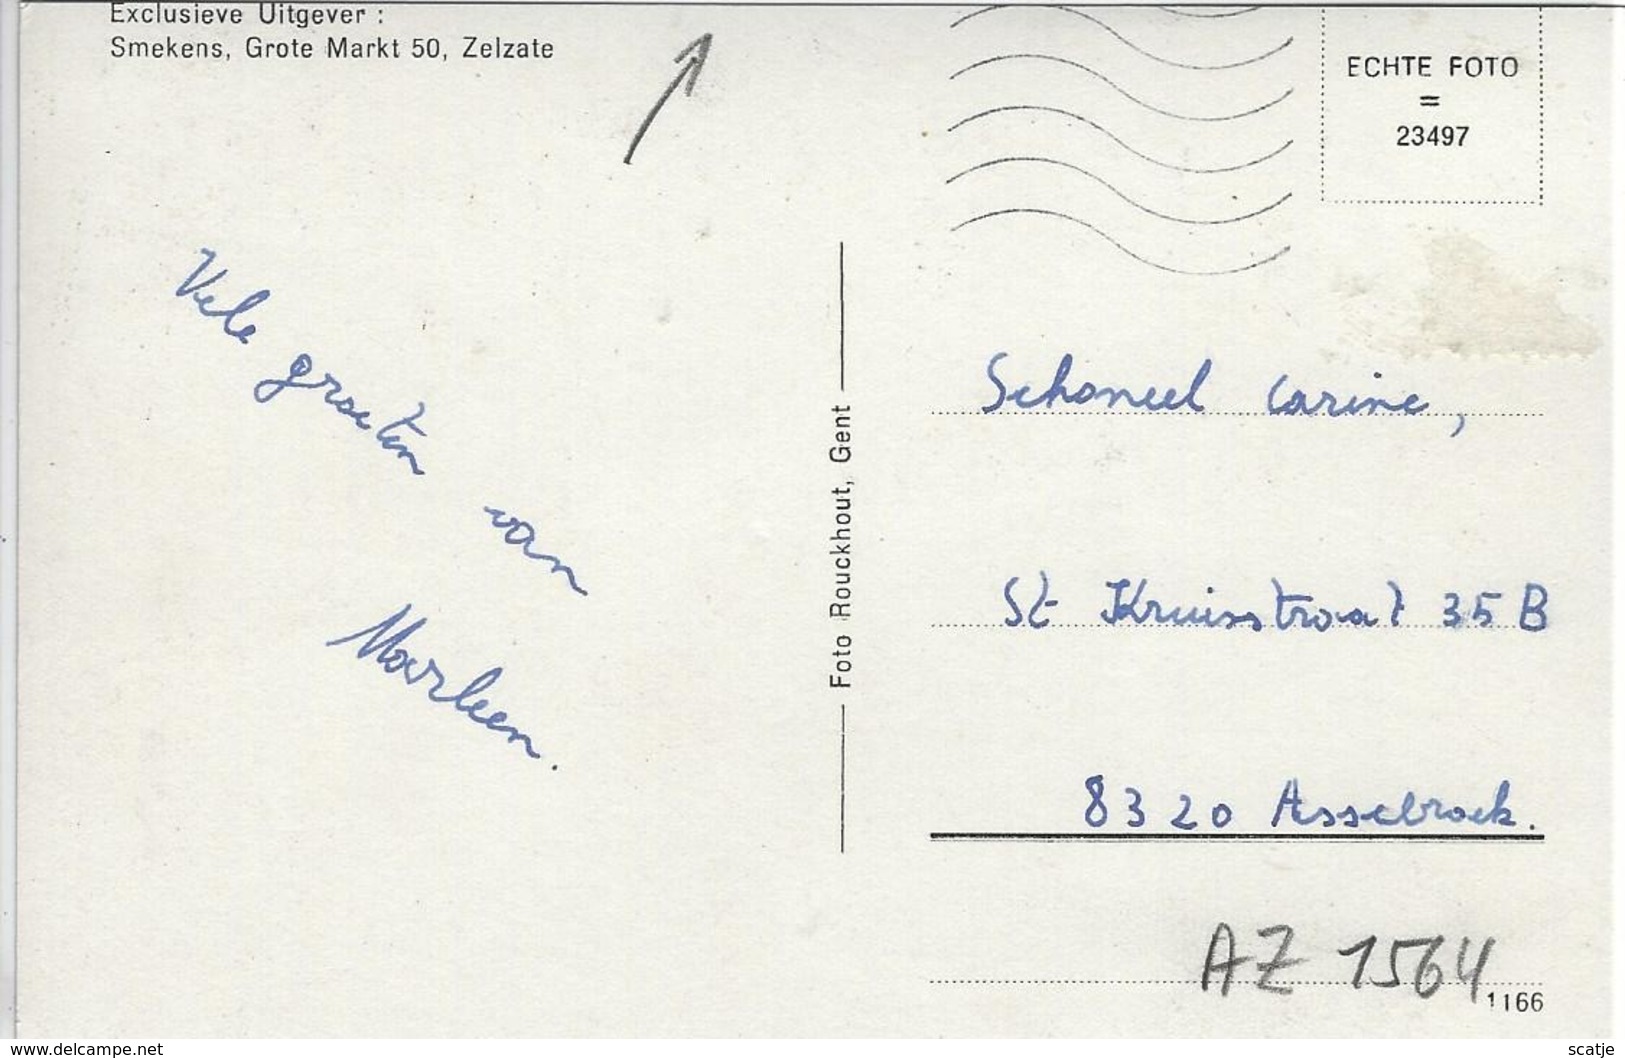 Exclusieve Uitgever :
Smekens, Grote Markt 50, Zelzate
ECHTE FOTO
=
23497
Vele groeten van
Marleen.
Foto Rouckhout, Gent
Schoneel Carine,
St Kruisstraat 35 B
8320 Assebroek.
AZ 1564
1166
www.delcampe.net
scatje